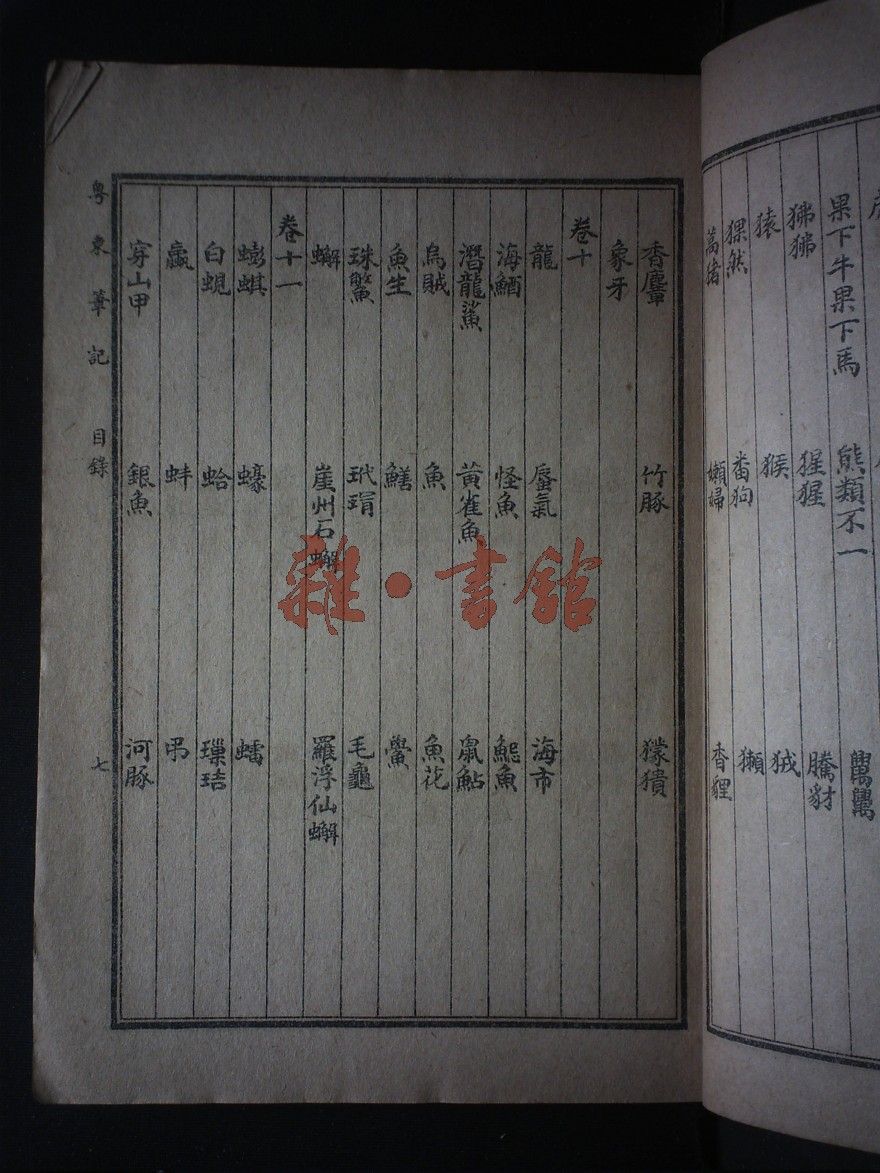 果下牛果下馬 熊類不一
狒狒 猩猩 騰豺
猿 猴 狨
猓然 番狗 獺
蒿豬 嬾婦 香貍
香麞 竹豚 獴㹍
象牙
卷十
龍 蜃氣 海市
海鰌 怪魚 魚
潛龍鯊 黃雀魚 鼠鮎
烏賊 魚 魚花
魚生 鱔 鱟
珠鱉 玳瑁 毛龜
蠏 崖州石蠏 羅浮仙蠏
卷十一
蟛蜞 蠔 蟳
白蜆 蛤 璅琣
蠃 蚌
穿山甲 銀魚 河豚
粵東筆記 目錄 七
雜·書館